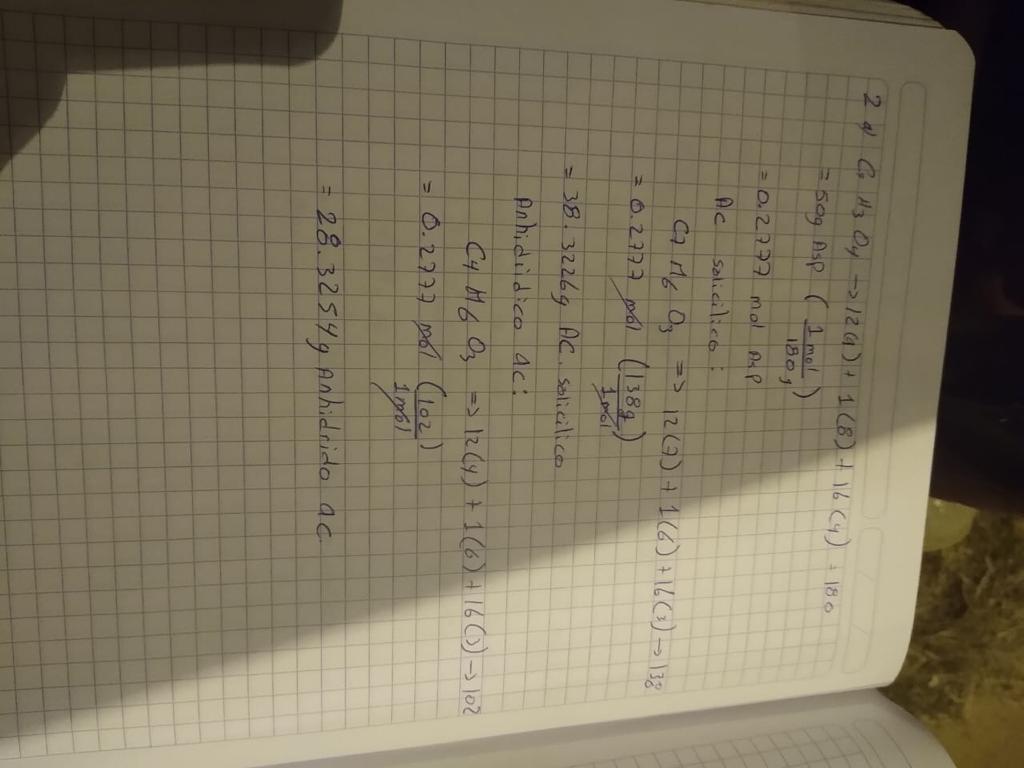 2 a) C9 H8 O4 → 12(9) + 1(8) + 16(4) = 180
= 50g Asp ( 1 mol / 180 g )
= 0.2777 mol Asp
Ac salicilico :
C7 H6 O3 => 12(7) + 1(6) + 16(3) → 138
= 0.2777 mol ( 138g / 1 mol )
= 38.3226g Ac. salicilico
Anhididico ac:
C4 H6 O3 => 12(4) + 1(6) + 16(3) → 102
= 0.2777 mol ( 102 / 1 mol )
= 28.3254g Anhidrido ac